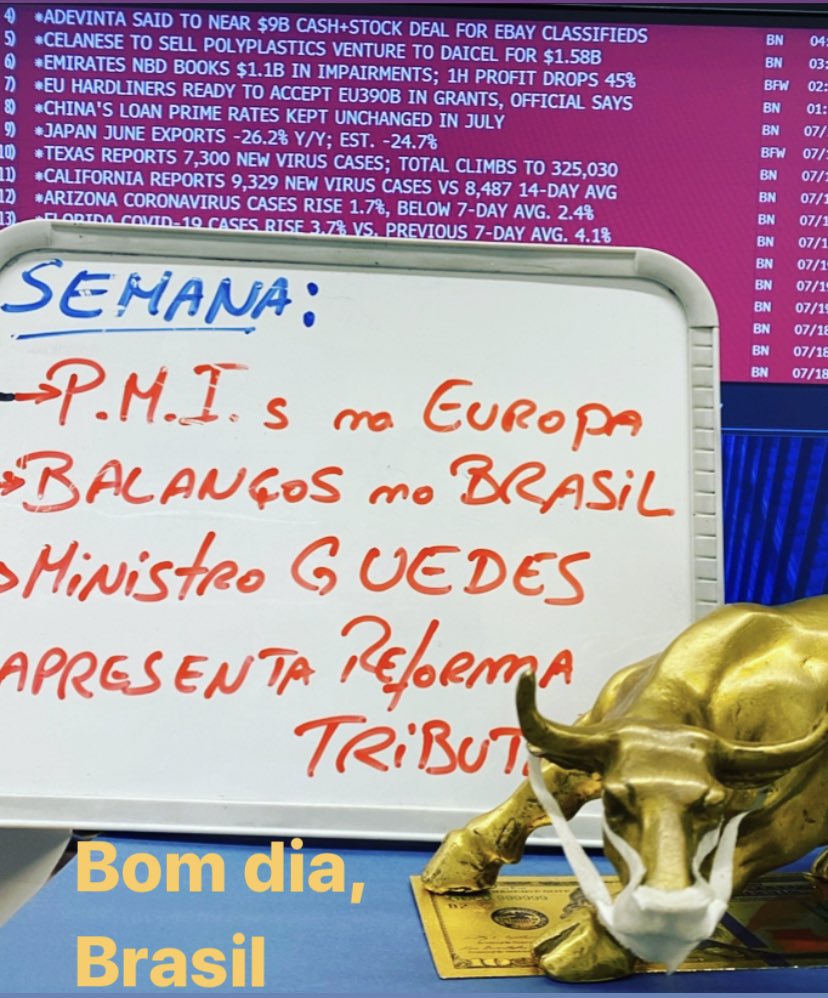 4) *ADEVINTA SAID TO NEAR $9B CASH+STOCK DEAL FOR EBAY CLASSIFIEDS BN 04:
5) *CELANESE TO SELL POLYPLASTICS VENTURE TO DAICEL FOR $1.58B BN 03:
6) *EMIRATES NBD BOOKS $1.1B IN IMPAIRMENTS; 1H PROFIT DROPS 45% BFW 02:
7) *EU HARDLINERS READY TO ACCEPT EU390B IN GRANTS, OFFICIAL SAYS BN 01:
8) *CHINA'S LOAN PRIME RATES KEPT UNCHANGED IN JULY BN 07/
9) *JAPAN JUNE EXPORTS -26.2% Y/Y; EST. -24.7% BFW 07/1
10) *TEXAS REPORTS 7,300 NEW VIRUS CASES; TOTAL CLIMBS TO 325,030 BN 07/1
11) *CALIFORNIA REPORTS 9,329 NEW VIRUS CASES VS 8,487 14-DAY AVG BN 07/1
12) *ARIZONA CORONAVIRUS CASES RISE 1.7%, BELOW 7-DAY AVG. 2.4% BN 07/1
13) *FLORIDA COVID-19 CASES RISE 3.7% VS. PREVIOUS 7-DAY AVG. 4.1% BN 07/1
BN 07/19
BN 07/19
BN 07/18
BN 07/18
BN 07/18
SEMANA:
→P.M.I.s na EUROPA
→BALANÇOS no BRASIL
>MINISTRO GUEDES
APRESENTA REFORMA
TRIBUT
999999
Bom dia,
Brasil